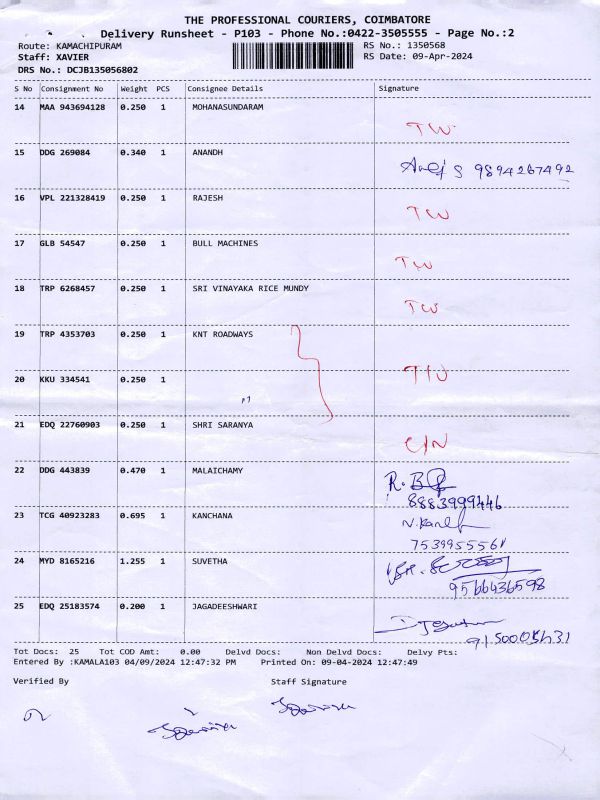 THE PROFESSIONAL COURIERS, COIMBATORE
Delivery Runsheet - P103 - Phone No.:0422-3505555 - Page No.:2
Route: KAMACHIPURAM RS No.: 1350568
Staff: XAVIER RS Date: 09-Apr-2024
DRS No.: DCJB135056802
S No Consignment No Weight PCS Consignee Details Signature
14 MAA 943694128 0.250 1 MOHANASUNDARAM
TW
15 DDG 269084 0.340 1 ANANDH
9894267492
16 VPL 221328419 0.250 1 RAJESH
TW
17 GLB 54547 0.250 1 BULL MACHINES
TW
18 TRP 6268457 0.250 1 SRI VINAYAKA RICE MUNDY
TW
19 TRP 4353703 0.250 1 KNT ROADWAYS
20 KKU 334541 0.250 1
TW
21 EDQ 22760903 0.250 1 SHRI SARANYA
C/N
22 DDG 443839 0.470 1 MALAICHAMY
8883999446
23 TCG 40923283 0.695 1 KANCHANA
7539955561
24 MYD 8165216 1.255 1 SUVETHA
9566436598
25 EDQ 25183574 0.200 1 JAGADEESHWARI
Tot Docs: 25 Tot COD Amt: 0.00 Delvd Docs: Non Delvd Docs: Delvy Pts:
Entered By :KAMALA103 04/09/2024 12:47:32 PM Printed On: 09-04-2024 12:47:49
Verified By Staff Signature